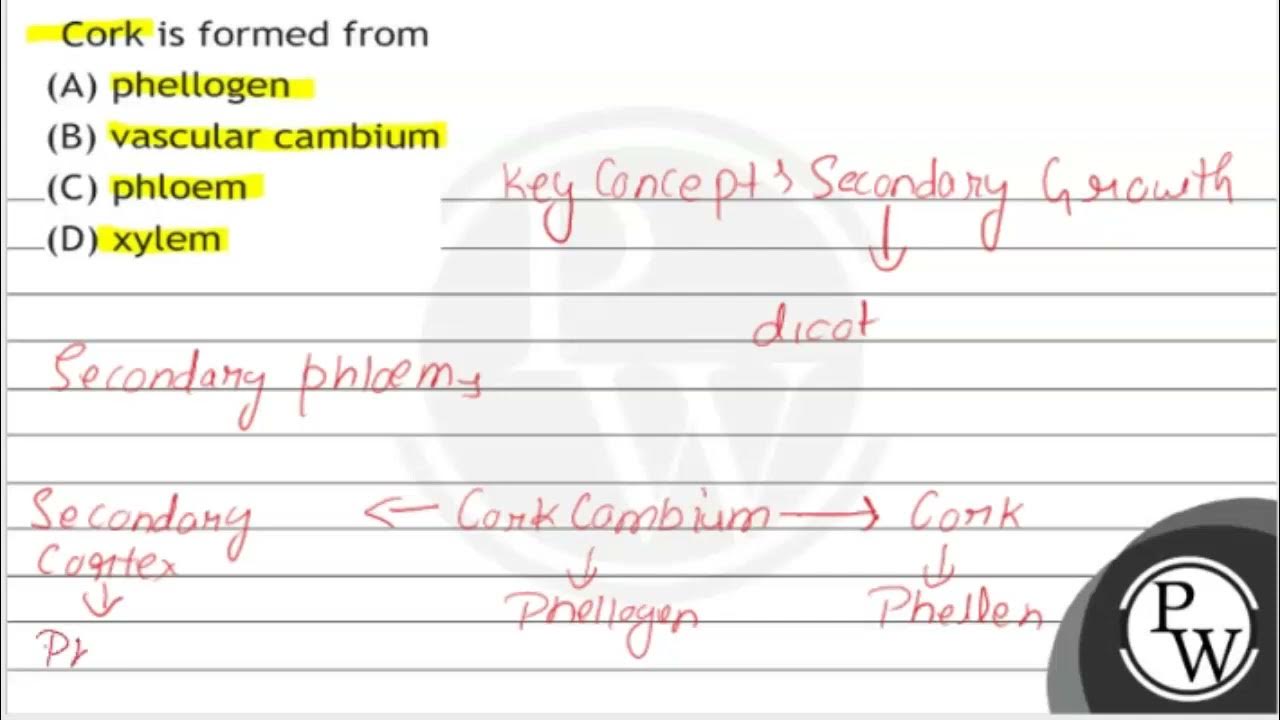 Cork is formed from
(A) phellogen
(B) vascular cambium
(C) phloem
(D) xylem
Key Concept : Secondary Growth
↓
dicot
Secondary phloem
Secondary ← Cork Cambium → Cork
Cortex ↓ ↓
↓ Phellogen Phellem
Ph
PW
PW